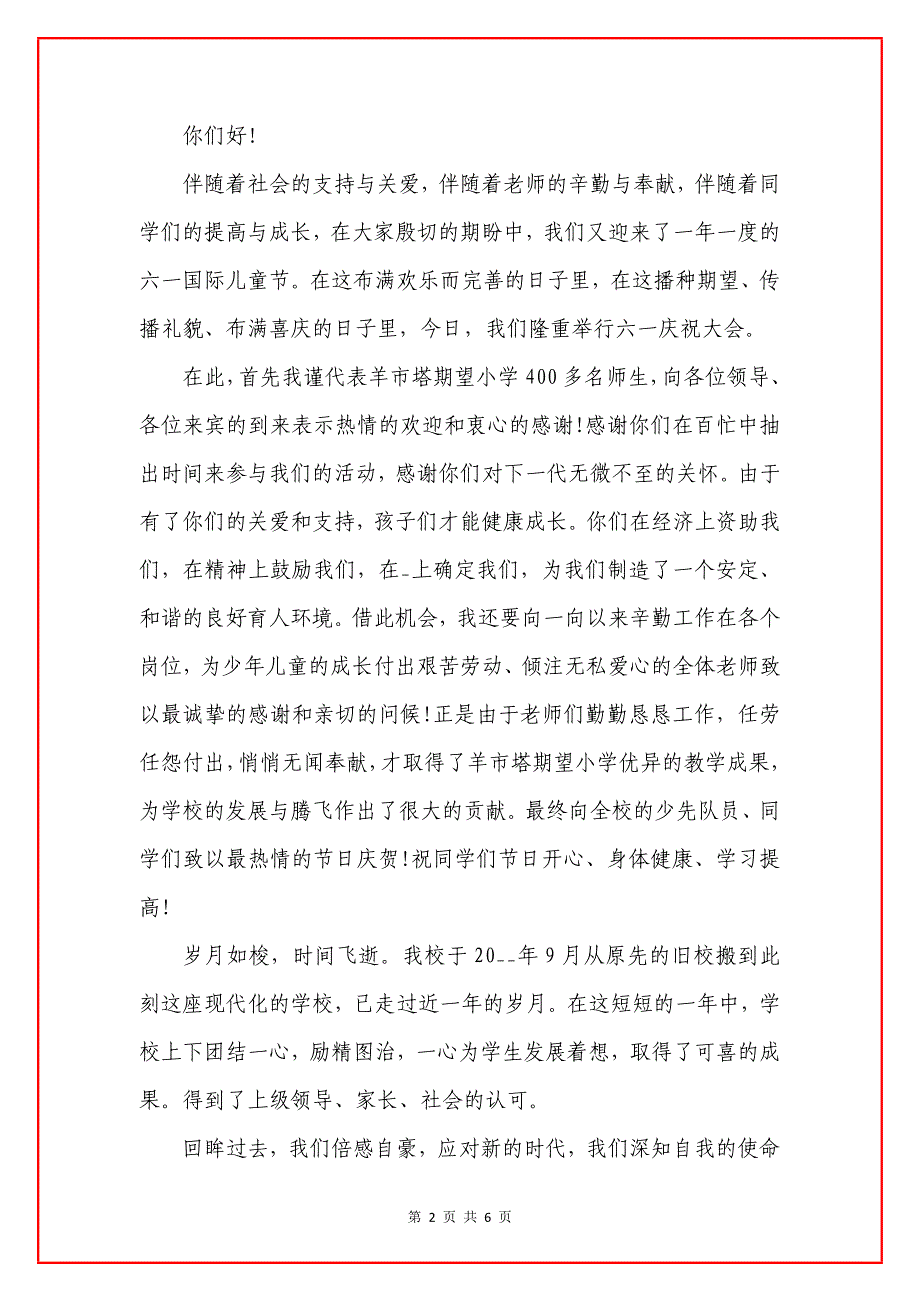 你们好!
伴随着社会的支持与关爱，伴随着老师的辛勤与奉献，伴随着同
学们的提高与成长，在大家殷切的期盼中，我们又迎来了一年一度的
六一国际儿童节。在这布满欢乐而完善的日子里，在这播种期望、传
播礼貌、布满喜庆的日子里，今日，我们隆重举行六一庆祝大会。
在此，首先我谨代表羊市塔期望小学 400 多名师生，向各位领导、
各位来宾的到来表示热情的欢迎和衷心的感谢!感谢你们在百忙中抽
出时间来参与我们的活动，感谢你们对下一代无微不至的关怀。由于
有了你们的关爱和支持，孩子们才能健康成长。你们在经济上资助我
们，在精神上鼓励我们，在_上确定我们，为我们制造了一个安定、
和谐的良好育人环境。借此机会，我还要向一向以来辛勤工作在各个
岗位，为少年儿童的成长付出艰苦劳动、倾注无私爱心的全体老师致
以最诚挚的感谢和亲切的问候!正是由于老师们勤勤恳恳工作，任劳
任怨付出，悄悄无闻奉献，才取得了羊市塔期望小学优异的教学成果，
为学校的发展与腾飞作出了很大的贡献。最终向全校的少先队员、同
学们致以最热情的节日庆贺!祝同学们节日开心、身体健康、学习提
高!
岁月如梭，时间飞逝。我校于 20__年 9 月从原先的旧校搬到此
刻这座现代化的学校，已走过近一年的岁月。在这短短的一年中，学
校上下团结一心，励精图治，一心为学生发展着想，取得了可喜的成
果。得到了上级领导、家长、社会的认可。
回眸过去，我们倍感自豪，应对新的时代，我们深知自我的使命
第 2 页 共 6 页